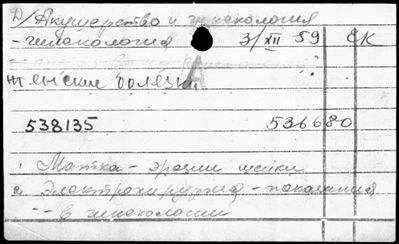 Д/Акушерство и гинекология
- гинекология 3/XII 59 СК
женские болезни
А
538135 536680
1. Матка - эрозии шейки
2. Электрохирургия - показания
-"- в гинекологии